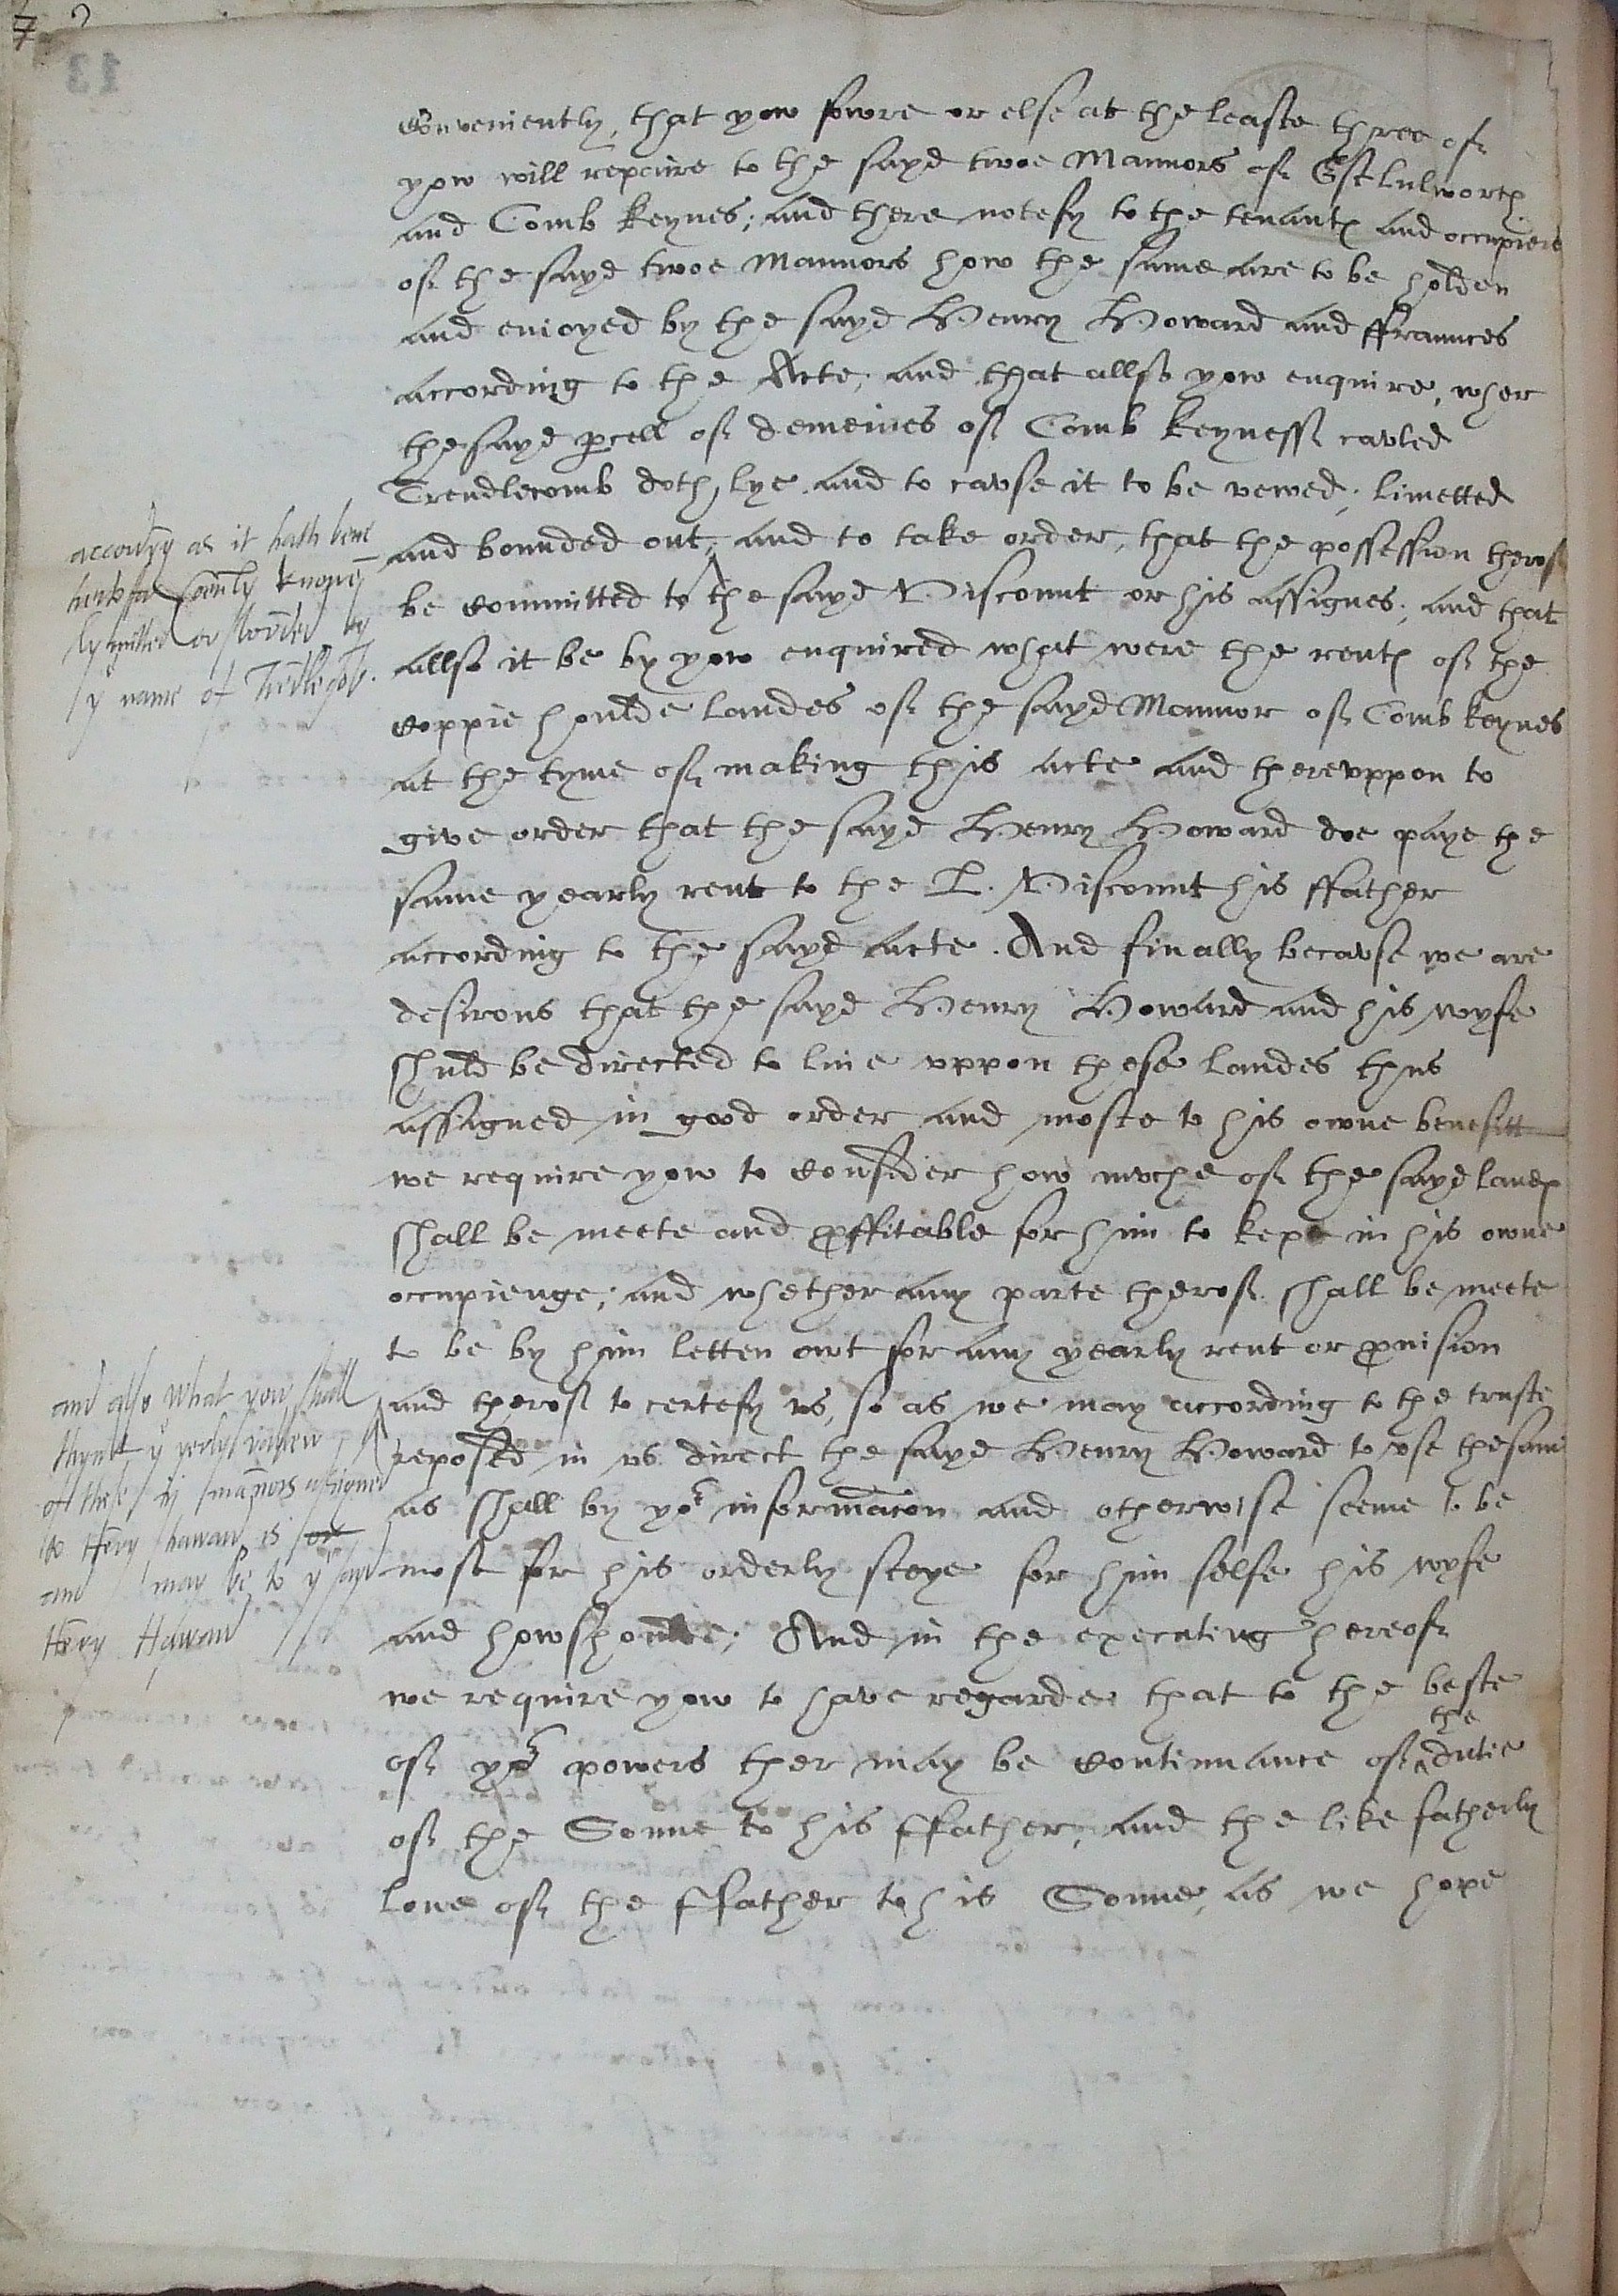 7
13
Conveniently, that yow fowre or else at the leaste three of
yow will repaire to the sayd twoe Mannors of Est Lulworth
and Comb Keynes; and there notefy to the tenantꝭ and occupiers
of the sayd twoe Mannors how the same are to be holden
and enioyed by the sayd Henry Howard and ffraunces
according to the Acte, and that allso yow enquire, wher
the sayd ꝑcell of demeines of Comb Keyness cavled
Trendlecomb doth lye and to cavse it to be vewed; limetted
and bounded out, and to take order, that the possession therof
be committed to the sayd Viscount or his assignes; and that
allso it be by yow enquired what were the rentꝭ of the
Coppie houlde landes of the sayd Mannor of Comb Keynes
at the tyme of making this acte and therevppon to
give order that the sayd Henry Howard doe paye the
same yearly rent to the L. Viscount his ffather
according to the sayd acte. And finally becavse we are
desirous that the sayd Henry Howard and his wyfe
shuld be directed to liue vppon these landes thus
assigned in good order and moste to his owne benefitt
we require yow to Consider how mvche of the sayd landꝭ
shall be meete and ꝓffitable for him to kepe in his owne
occupienge; and whether any parte therof shall be meete
to be by him letten owt for any yearly rent or ꝓuision
and therof to certefy vs, so as we may according to the truste
reposed in vs direct the sayd Henry Howard to vse the same
as shall by yoʳ informac̃on and otherwise seeme to be
most for his orderly steye for him selfe his wyfe
and howshoulde; And in the executing hereof
we require yow to have regarde that to the beste
of yoʳ powers ther may be Continuance of ^the dutie
of the Sonne to his ffather, and the like fatherly
loue of the ffather to his Sonne, as we hope
as it hath bene
knowē
lymitted or
yͤ name of
and also what yow shall
thynk yͤ yerly valew
of these ij mānors assigned
to Hēry haward is or
and may be to yͤ sayd
Hēry Haward